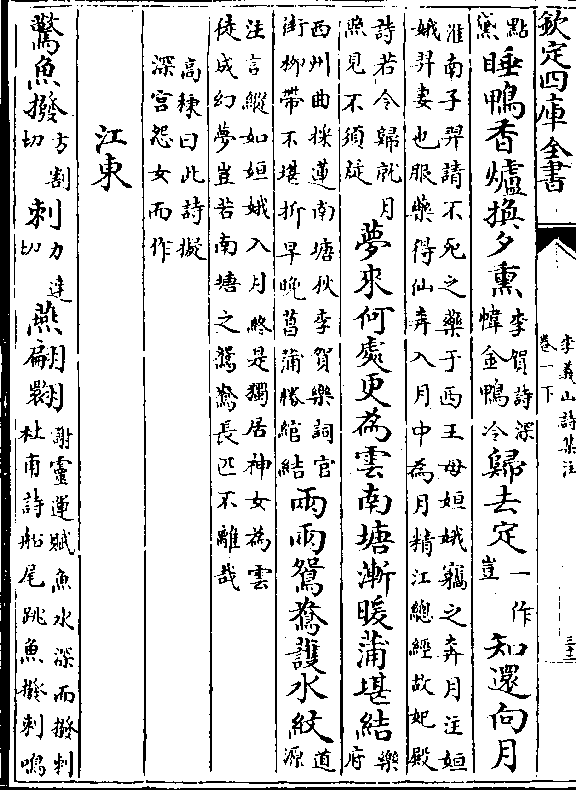 欽定四庫全書
李義山詩集注
卷一下
三十二
點
睡鴨香爐換夕熏
李賀詩深
幃金鴨冷
歸去定
一作
豈
知還向月
淮南子羿請不死之藥于西王母姮娥竊之奔月注姮
娥羿妻也服藥得仙奔入月中為月精江總經故妃殿
詩若令歸就月
照見不須疑
夢來何處更為雲南塘漸暖蒲堪結
樂
府
西州曲採蓮南塘秋李賀樂詞官
街柳帶不堪折早晚菖蒲勝綰結
兩兩鴛鴦護水紋
道
源
注言縱如姮娥入月終是獨居神女為雲
徒成幻夢豈若南塘之鴛鴦長匹不離哉
高棅曰此詩擬
深宫怨女而作
江東
驚魚撥
方割
切
剌
力達
切
燕翩翾
謝靈運賦魚水深而撥剌
杜甫詩船尾跳魚撥剌鳴